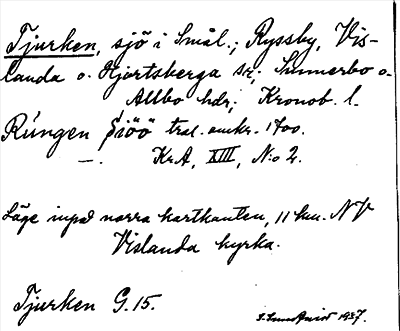 Tjurken, sjö i Smål.; Ryssby, Vis-
landa o. Hjortsberga sr; Sunnerbo o.
Allbo hdr; Kronob. l.
Rúngen Siöö tral. omkr. 1700.
—. Kr.A, XIII, N:o 2.
Läge inpå norra kartkanten, 11 km. NV
Vislanda kyrka.
Tjurken G. 15.
1937.